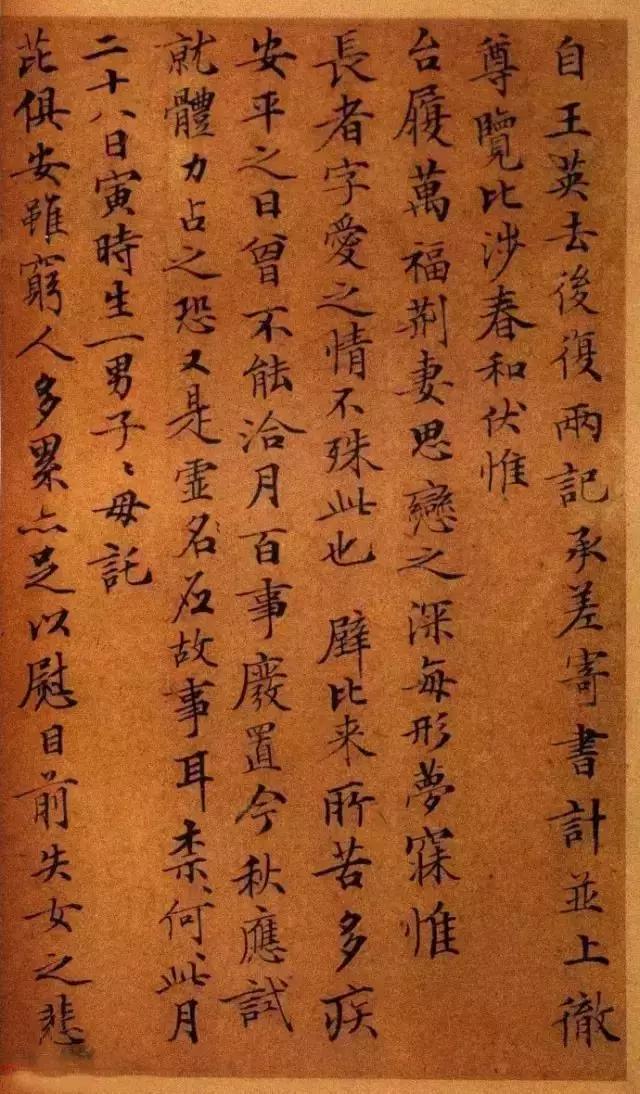 自王英去後復兩記承差寄書計並上徹
尊覽比涉春和伏惟
台履萬福荆妻思戀之深每形夢寐惟
長者字愛之情不殊此也 璧比来所苦多疾
安平之日曾不能洽月百事廢置今秋應試
就體力占之恐又是虚名应故事耳柰何〻此月
二十八日寅時生一男子〻母託
芘俱安雖窮人多累亦足以慰目前失女之悲